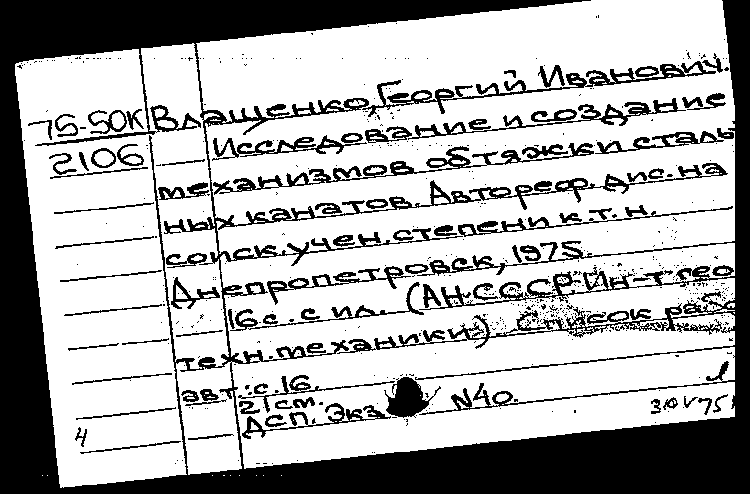 75-50К Влащенко, Георгий Иванович.
2106 Исследование и создание
механизмов обтяжки сталь
ных канатов. Автореф. дис. на
соиск. учен. степени к.т.н.
Днепропетровск, 1975.
16 с. с ил. (АН СССР. Ин-т гео
техн. механики). Список рабо
авт.: с. 16.
21 см.
ДСП. Экз N40.
4 30 V 75